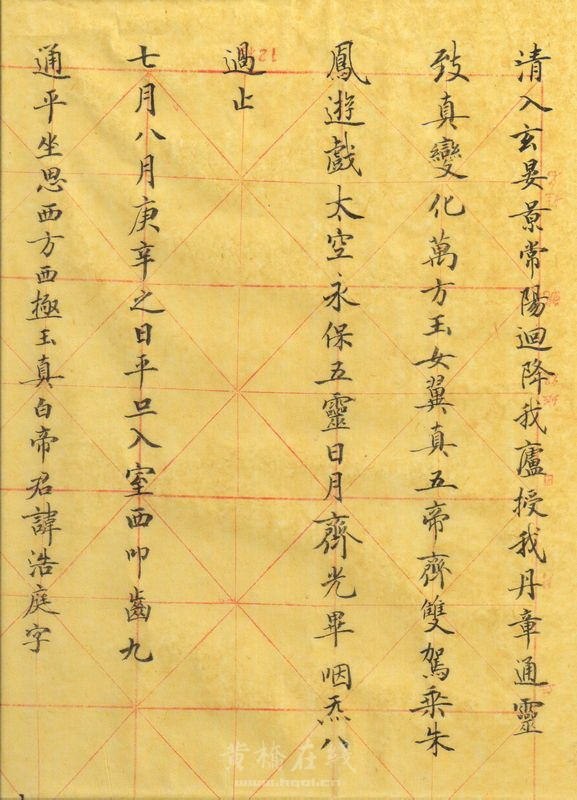 清入玄晏景常陽迴降我廬授我丹章通靈
致真變化萬方玉女翼真五帝齊雙駕乘朱
鳳遊戲太空永保五靈日月齊光畢咽炁八
過止
七月八月庚辛之日平旦入室西叩齒九
通平坐思西方西極玉真白帝君諱浩庭字
黄桥在线